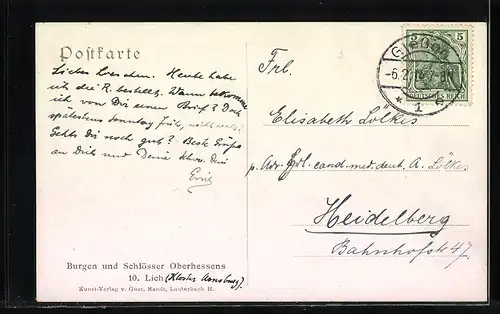 Postkarte
Liebes Lieschen. Heute habe
ich die R. bestellt. Wann bekomme
ich von Dir einen Brief? Doch
spätestens Sonntag früh, nicht wahr.
Gehts Dir noch gut? Beste Grüsse
an Dich und Deine Schw. Dein
Ernst
Burgen und Schlösser Oberhessens
10. Lich (Kloster Arnsburg).
Kunst-Verlag v. Gust. Mandt, Lauterbach H.
5 5
GIESSEN
-6.2. 7-8N
* 1
DEUTSCHES REICH
Frl.
Elisabeth Lölkes
p. Adr. cand. med. dent. A. Lölkes
Heidelberg
Bahnhofstr 47